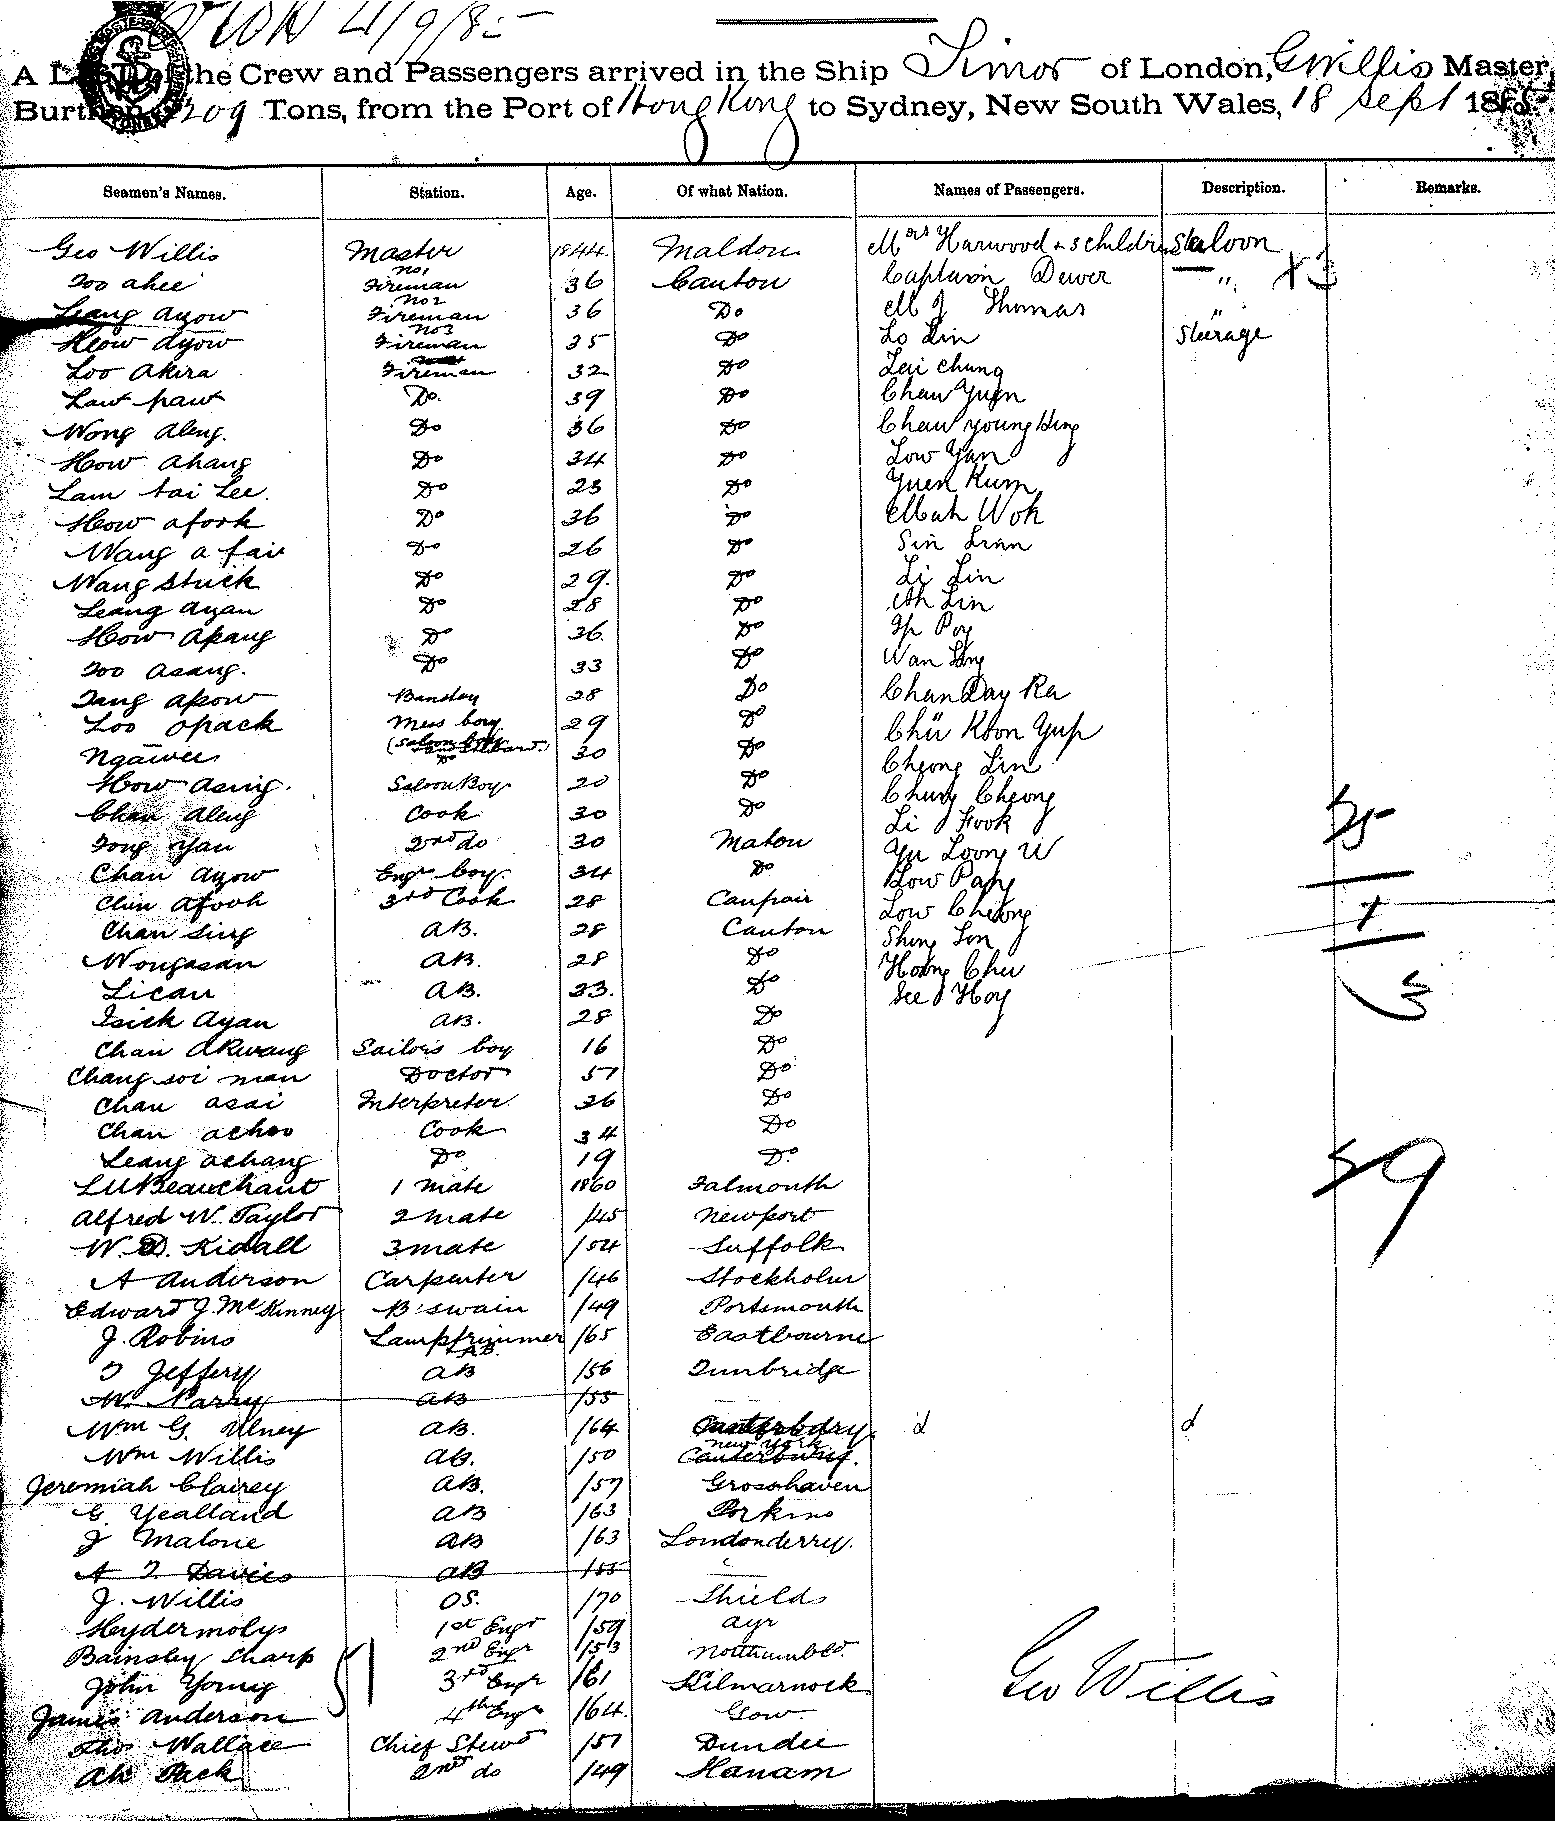 A List of the Crew and Passengers arrived in the Ship Timor of London, G Willis Master,
Burthen 209 Tons, from the Port of Hong Kong to Sydney, New South Wales, 18 Sept 188
Seamen's Names. Station. Age. Of what Nation. Names of Passengers. Description. Remarks.
Geo Willis Master 1844 Maldon Mrs Harwood + 3 children Saloon
Too ahee no1 Fireman 36 Canton Captain Dewer " X 3
Leang ayow no2 Fireman 36 Do M J Thomas "
How ayow no3 Fireman 35 Do Lo Lin Steerage
Loo akira Fireman 32 Do Lai Chung
Law paw Do. 39 Do Chaw Yuen
Wong aleng. Do 36 Do Chaw Young Hing
How ahang Do 34 Do Low Yan
Lam tai Lee. Do 23 Do Yuen Kum
How afork Do 36 Do Mah Wok
Wang a fair Do 26 Do Sin Lian
Wang Stuck Do 29. Do Li Lin
Leang ayan Do 28 Do Ah Lin
How apang Do 36. Do Ip Poy
Too asang. Do 33 Do Wan Sing
Tang apow 28 Do Chan Day Ka
Loo opack Mess boy 29 Do Chü Koon Yup
Ngawee Do 30 Do Cheong Lin
How asing. Saloon Boy 20 Do Chung Cheong
Chan aleng Cook 30 Do Li Fook
Tong Yan 2nd do 30 Matou Yu Loong U
Chan ayow Engr boy. 34 Do Low Pang
Chin afook 3rd Cook 28 Low Cheong
Chan Sing AB. 28 Canton Shing Lon
Wongasan AB. 28 Do Hoong Chu
Lican AB. 33. Do See Hoy
Tsick Ayan AB. 28 Do
Chan akwang Sailors boy 16 Do
Chang soi man Doctor 57 Do
Chan asai Interpreter 36 Do
Chan achoo Cook 34 Do
Leang achang Do 19 Do
L W Beauchant 1 mate 1860 Falmouth
Alfred W. Taylor 2 mate /45 Newport
W. D. Kidall 3 mate /54 Suffolk
A Anderson Carpenter /46 Stockholm
Edward J. McKinney B'swain /49 Portsmouth
J. Robins Lamptrimmer AB. /65 Eastbourne
T Jeffery AB /56 Tunbridge
W. Parry AB /55
Wm G. Ulney AB. /64 Canterbury
Wm Willis AB. /50 New York Canterbury.
Jeremiah Clairey AB. /57 Grosshaven
G. Yealland AB /63 Porkins
J Malone AB /63 Londonderry.
A T Davies AB /55
J. Willis OS. /70 Shields
Heydermolys 1st Engr /59 Ayr
Bainsley Sharp 2nd Engr /53 Northumbd.
John Young 3rd Engr /61 Kilmarnock
James Anderson 4th Engr /64. Gow.
Thos Wallace Chief Stewd /57 Dundee
Ah Pack 2nd do /49 Hanam
59
Geo Willis